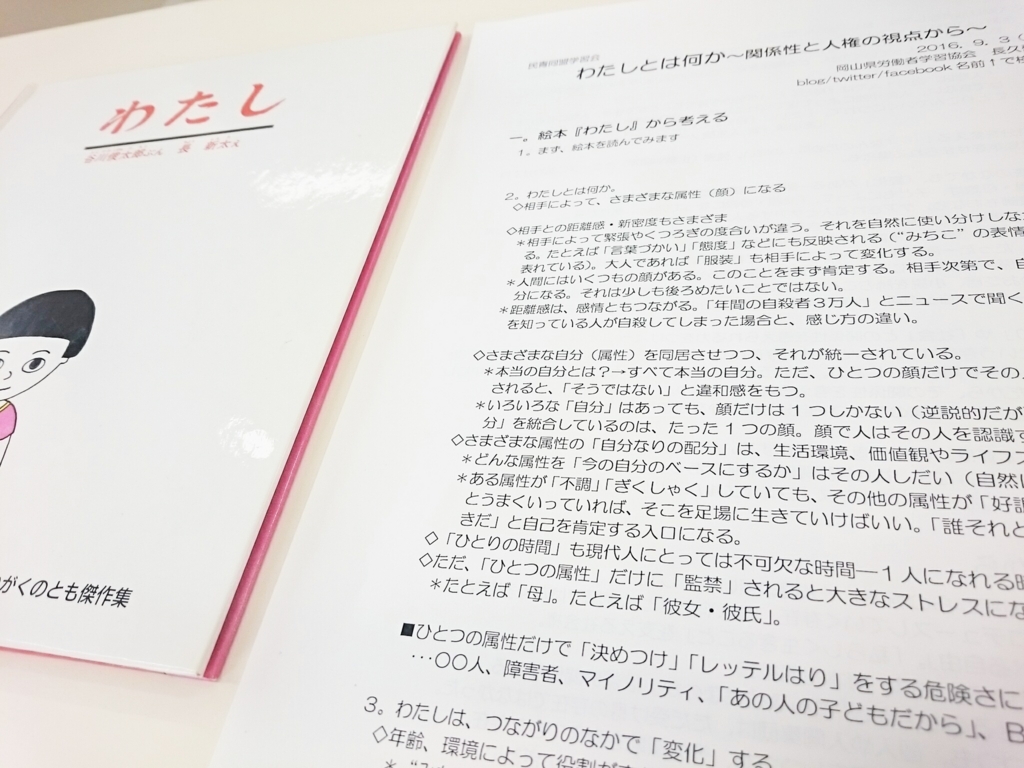 わたし
谷川俊太郎ぶん 長 新太え
がくのとも傑作集
民青同盟学習会
わたしとは何か～関係性と人権の視点から～
2016．9．3（
岡山県労働者学習協会 長久
blog/twitter/facebook 名前1で検
一。絵本『わたし』から考える
1。まず、絵本を読んでみます
2。わたしとは何か。
◇相手によって、さまざまな属性（顔）になる
◇相手との距離感・新密度もさまざま
＊相手によって緊張やくつろぎの度合いが違う。それを自然に使い分けしな
る。たとえば「言葉づかい」「態度」などにも反映される（“みちこ”の表情
表れている）。大人であれば「服装」も相手によって変化する。
＊人間にはいくつもの顔がある。このことをまず肯定する。相手次第で、自
分になる。それは少しも後ろめたいことではない。
＊距離感は、感情ともつながる。「年間の自殺者3万人」とニュースで聞く
を知っている人が自殺してしまった場合と、感じ方の違い。
◇さまざまな自分（属性）を同居させつつ、それが統一されている。
＊本当の自分とは？→すべて本当の自分。ただ、ひとつの顔だけでその人
されると、「そうではない」と違和感をもつ。
＊いろいろな「自分」はあっても、顔だけは1つしかない（逆説的だが
分」を統合しているのは、たった1つの顔。顔で人はその人を認識す
◇さまざまな属性の「自分なりの配分」は、生活環境、価値観やライフス
＊どんな属性を「今の自分のベースにするか」はその人しだい（自然に
＊ある属性が「不調」「ぎくしゃく」していても、その他の属性が「好調
とうまくいっていれば、そこを足場に生きていけばいい。「誰それと
きだ」と自己を肯定する入口になる。
◇「ひとりの時間」も現代人にとっては不可欠な時間―1人になれる時
◇ただ、「ひとつの属性」だけに「監禁」されると大きなストレスにな
＊たとえば「母」。たとえば「彼女・彼氏」。
■ひとつの属性だけで「決めつけ」「レッテルはり」をする危険さに
…〇〇人、障害者、マイノリティ、「あの人の子どもだから」、B
3。わたしは、つながりのなかで「変化」する
◇年齢、環境によって役割が